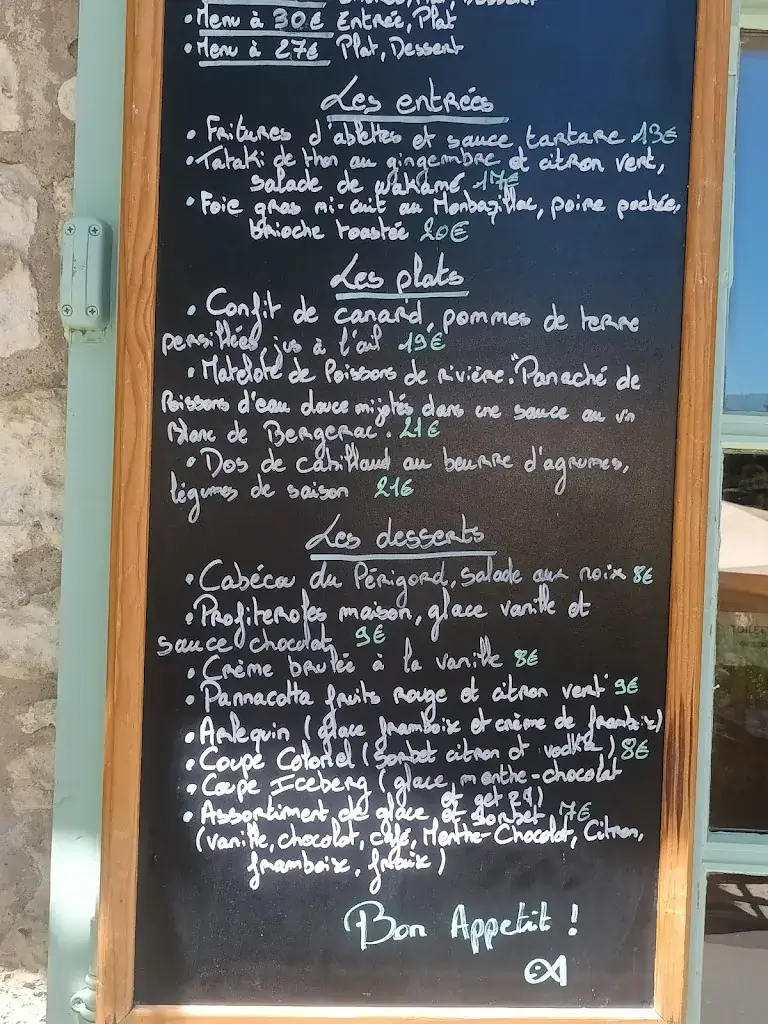 • Menu à 30€ Entrée, Plat
• Menu à 27€ Plat, Dessert
Les entrées
• Fritures d'ablettes et sauce tartare 13€
• Tataki de thon au gingembre et citron vert,
salade de wakamé, 17€
• Foie gras mi-cuit au Monbazillac, poire pochée,
brioche toastée 20€
Les plats
• Confit de canard, pommes de terre
persillées, jus à l'ail 19€
• Matelote de Poissons de rivière. "Panaché de
Poissons d'eau douce mijotés dans une sauce au vin
blanc de Bergerac. 21€
• Dos de cabillaud au beurre d'agrumes,
légumes de saison 21€
Les desserts
• Cabécou du Périgord, salade aux noix 8€
• Profiteroles maison, glace vanille et
sauce chocolat 9€
• Crème brulée à la vanille 8€
• Pannacotta fruits rouge et citron vert 9€
• Arlequin (glace framboix et crème de framboix)
• Coupe Colonel (sorbet citron et vodka) 8€
• Coupe Iceberg (glace menthe-chocolat
et get 27)
• Assortiment de glace et sorbet 7€
(vanille, chocolat, café, Menthe-Chocolat, Citron,
framboix, fraix)
Bon Appetit !